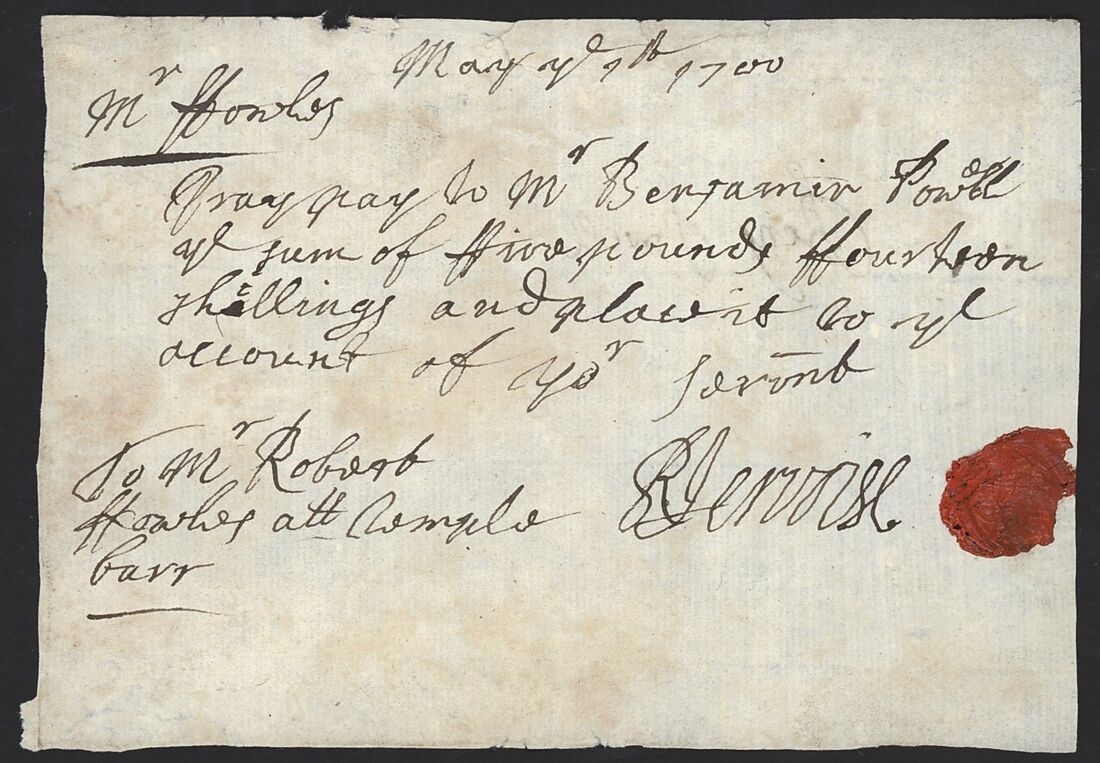 May ye 7th 1700
Mr ffowles
Pray pay to Mr Benjamin Powell
ye sum of ffive pounds ffourteen
shillings and place it to ye
account of yor servnt
RJervoise
To Mr Robert
ffowles att Temple
barr